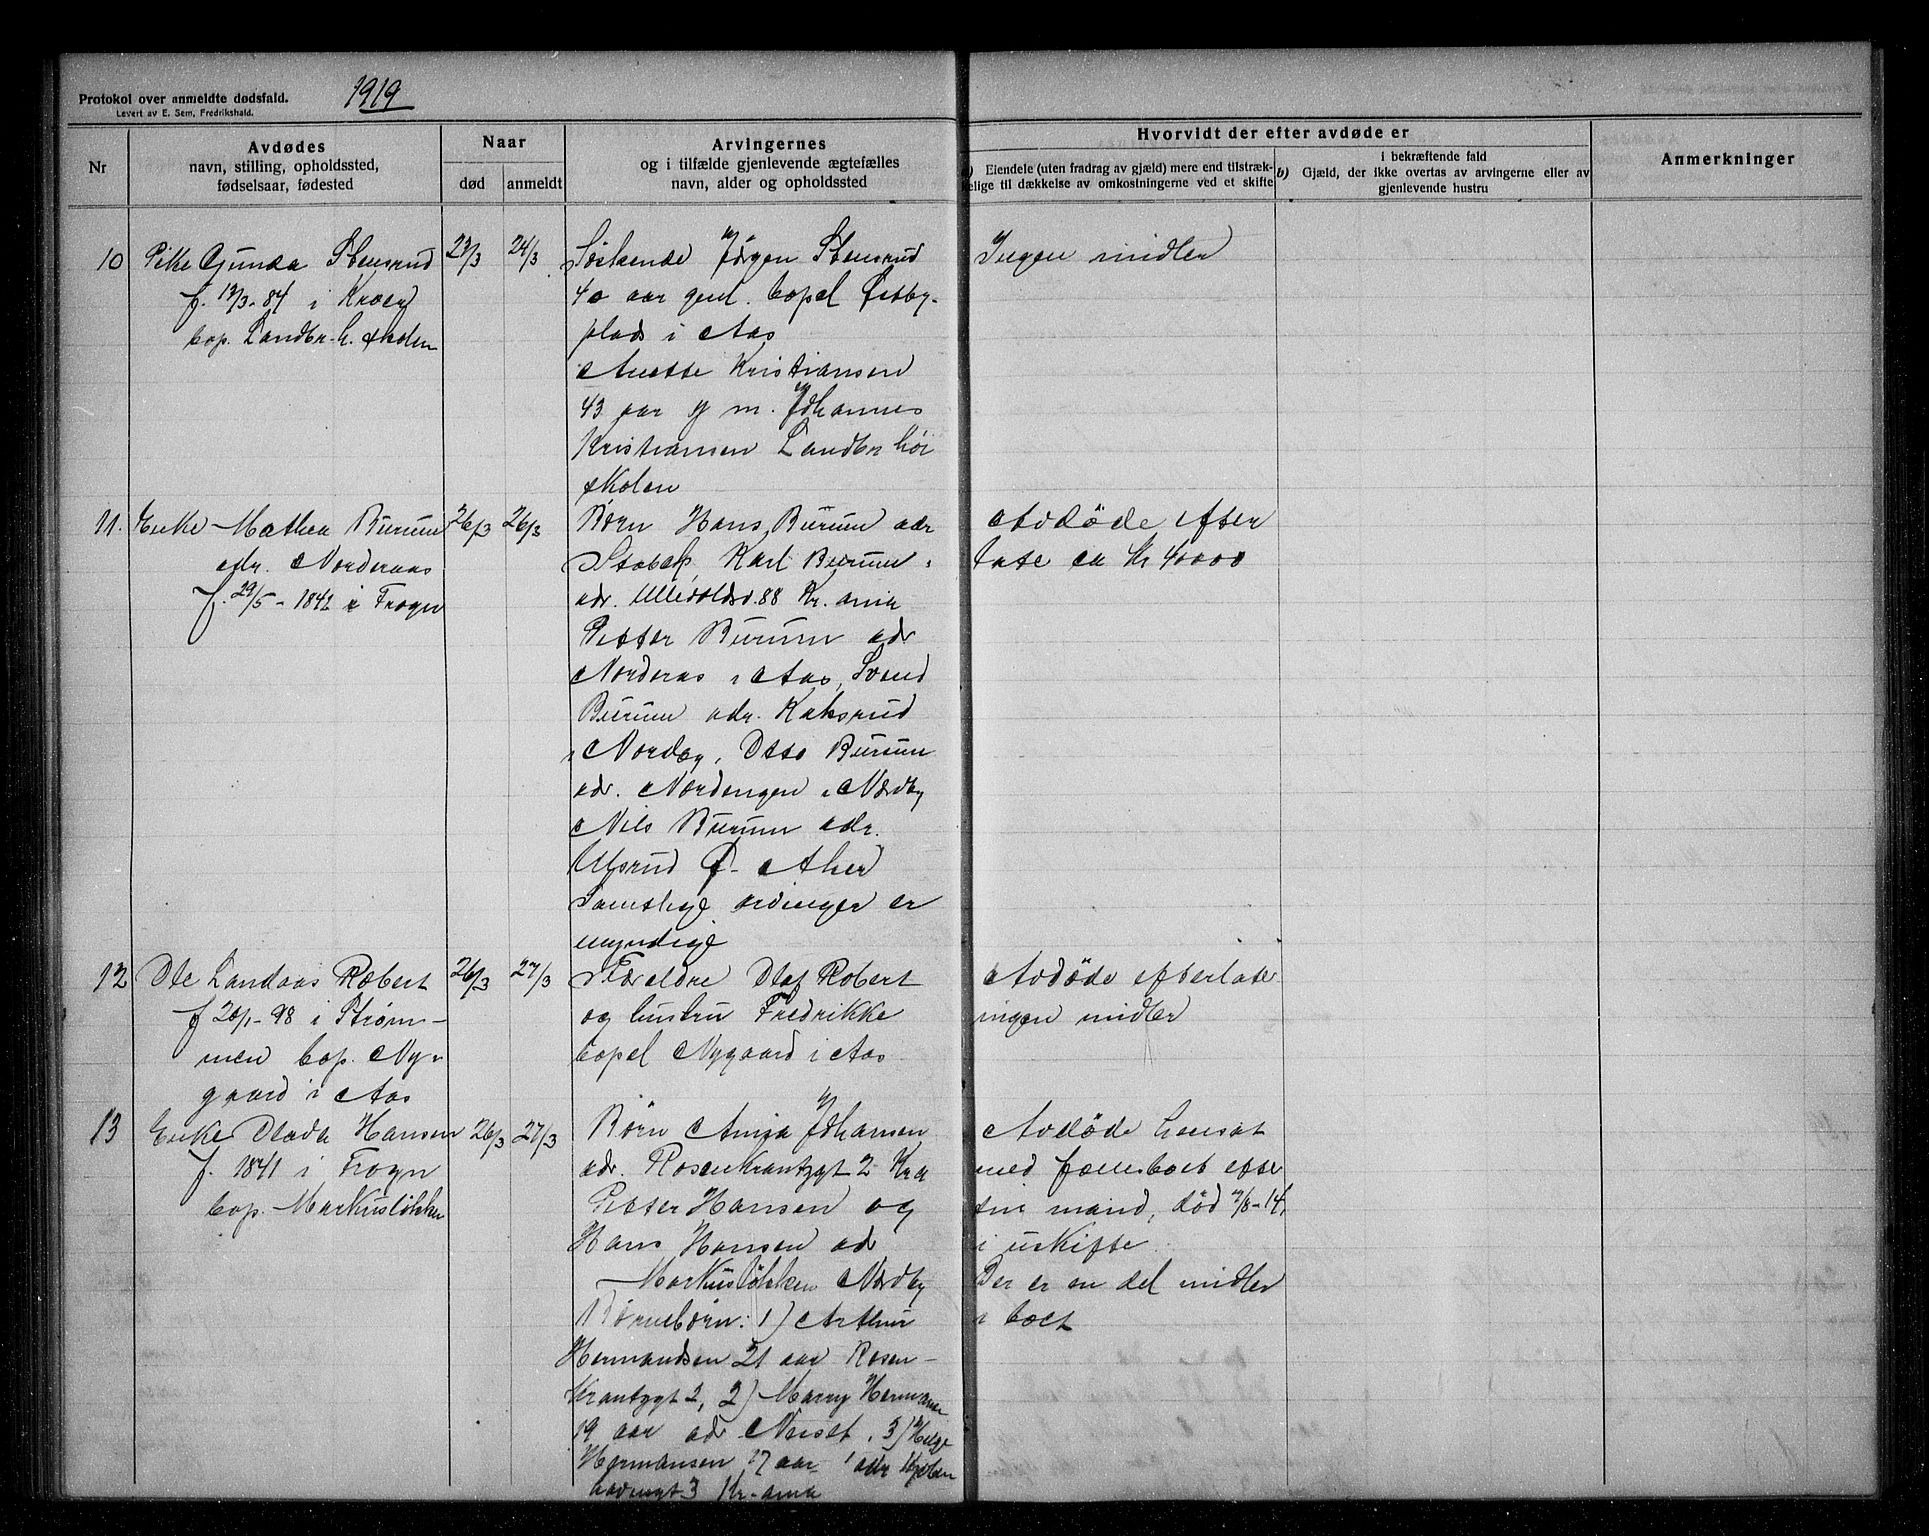 Protokol over anmeldte dødsfald.
Levert av E. Sem, Fredrikshald.
1919
Nr
Avdødes
navn, stilling, opholdssted,
fødselsaar, fødested
Naar
død
anmeldt
Arvingernes
og i tilfælde gjenlevende ægtefælles
navn, alder og opholdssted
Hvorvidt der efter avdøde er
Eiendele (uten fradrag av gjæld) mere end tilstræk-
kelige til dækkelse av omkostningerne ved et skifte
i bekræftende fald
b) Gjæld, der ikke overtas av arvingerne eller av
gjenlevende hustru
Anmerkninger
10
Pike Gunda Stensrud
f. 12/3-84 i Kroer
bop. Landbr. h. skolen
23/3
24/3
Søskende Jørgen Stensrud
40 aar gml. bopel Østby-
plads i Aas
Anette Kristiansen
43 aar g m. Johannes
Kristiansen Landbr høi
skolen
Ingen midler
11.
Enke Mathea Burum
adr. Norderaas
f. 29/5-1841 i Frogn
26/3
26/3
Børn Hans Burum adr
Stabek, Karl Burum
adr. Ullevoldsv. 88 Kr. ania
Petter Burum adr
Norderas i Aas, Svend
Burum adr. Kaksrud
i Nordby, Otto Burum
adr. Nordengen i Nordby
Nils Burum adr.
Ulsrud Ø. Aker
Samtlige arvinger er
myndige
Avdøde efter
later ca kr 40000
12
Ole Landaas Robert
f 20/1-98 i Strøm-
men bop. Ny-
gaard i Aas
26/3
27/3
Forældre Olaf Robert
og hustru Fredrikke
bopel Nygaard i Aas
Avdøde efterlate
ingen midler
13
Enke Olava Hansen
f. 1841 i Frogn
bop. Markusløkken
26/3
27/3
Børn Anna Johansen
adr. Rosenkrantzgt 2 Kra
Petter Hansen og
Hans Hansen ad
Markusløkken Nordby
Børnebørn: 1) Arthur
Hermandsen 21 aar Rosen-
krantzgt 2, 2) Marry Hermansen
19 aar adr Neset, 3) Helge
Hermansen 17 aar adr
3 Kr-ania
Avdøde hensat
med fællesboet efter
sin mand, død 7/8-14,
i uskifte
Der er en del midler
i boet